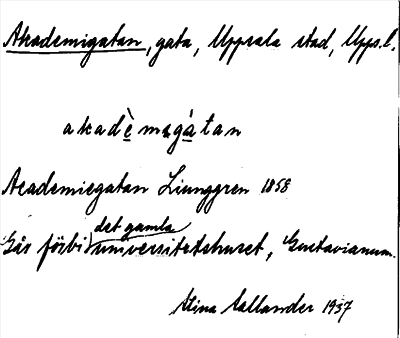 Akademigatan, gata, Uppsala stad, Upps. l.
akadè̱mıgà̱tan
Academiegatan Ljunggren 1858
Går förbi det gamla universitetshuset, Gustavianum.
Stina Sallander 1937